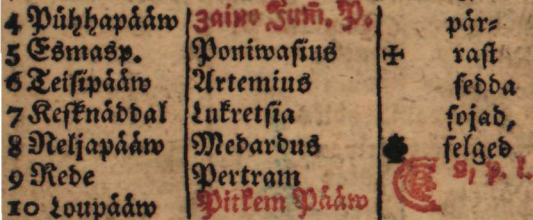 4 Pühhapääw 3aino Jum̃. P. pär⸗
5 Esmasp. Poniwasius ✠ rast
6 Teisipääw Artemius sedda
7 Kesknäddal Lukretsia sojad,
8 Neljapääw Medardus selged
9 Rede Pertram 8, p. l.
10 Loupääw Pitkem Pääw